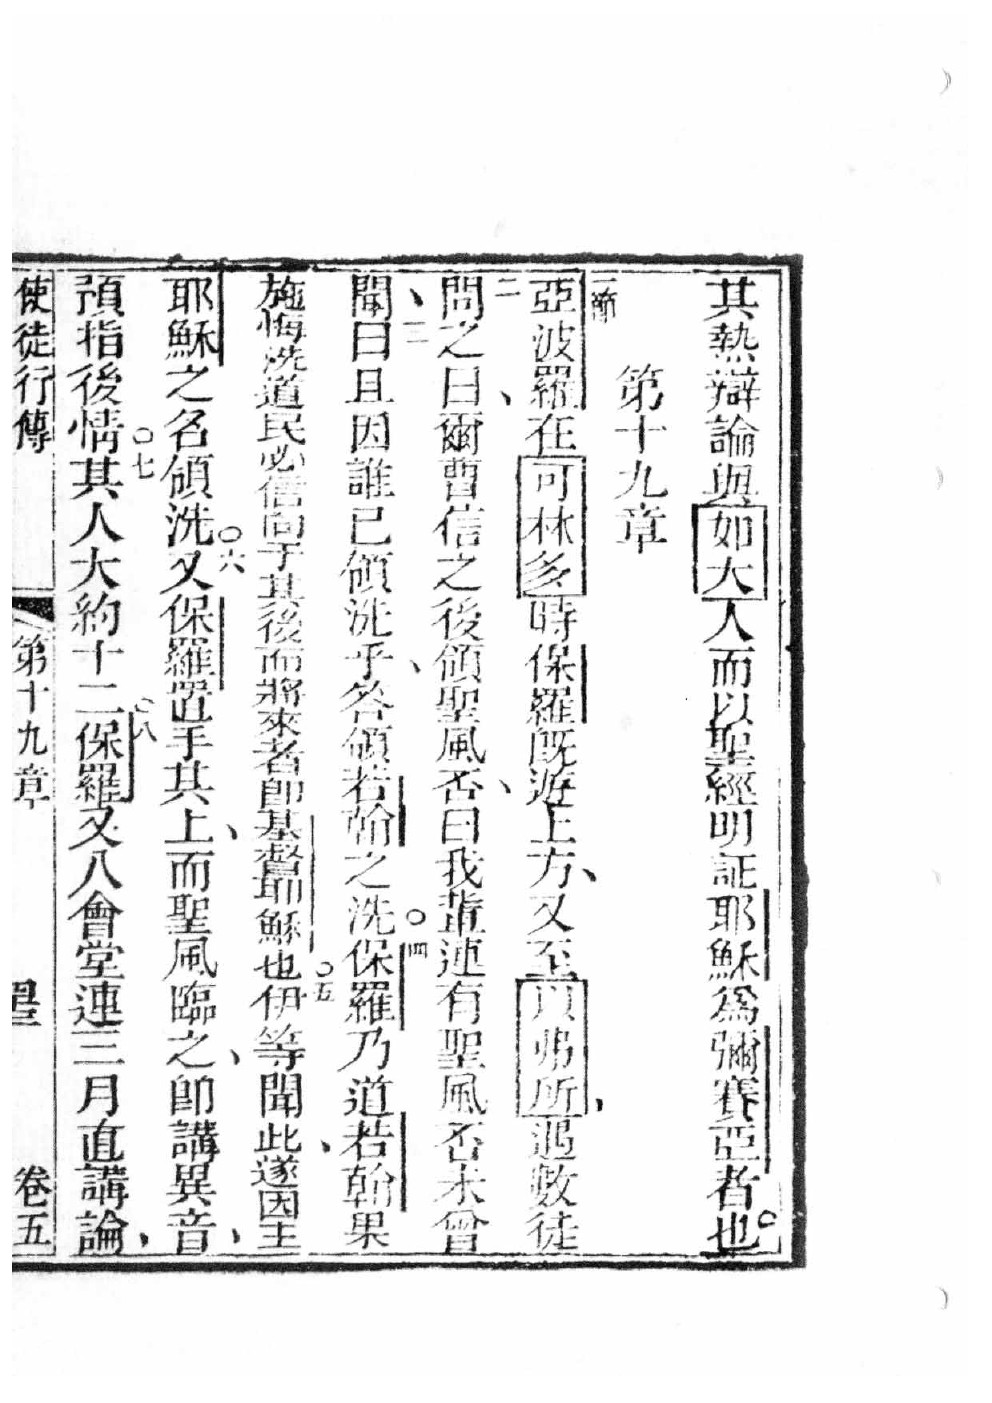 其熱辯論與如大人而以聖經明証耶穌為彌賽亞者也。
第十九章
一節
亞波羅在可林多時保羅既遊上方、又至以弗所、遇數徒
二
問之曰、爾曹信之後領聖風否、曰我輩連有聖風否未曾
聞、三曰且因誰已領洗乎、答領若翰之洗○四保羅乃道若翰果
施悔洗道民必信向于其後而將來者即基督耶穌也○五伊等聞此、遂因主
耶穌之名領洗○六又保羅置手其上、而聖風臨之、即講異音、
預指後情○七其人大約十二○八保羅又入會堂連三月直講論、
使徒行傳 第十九章 聖 卷五